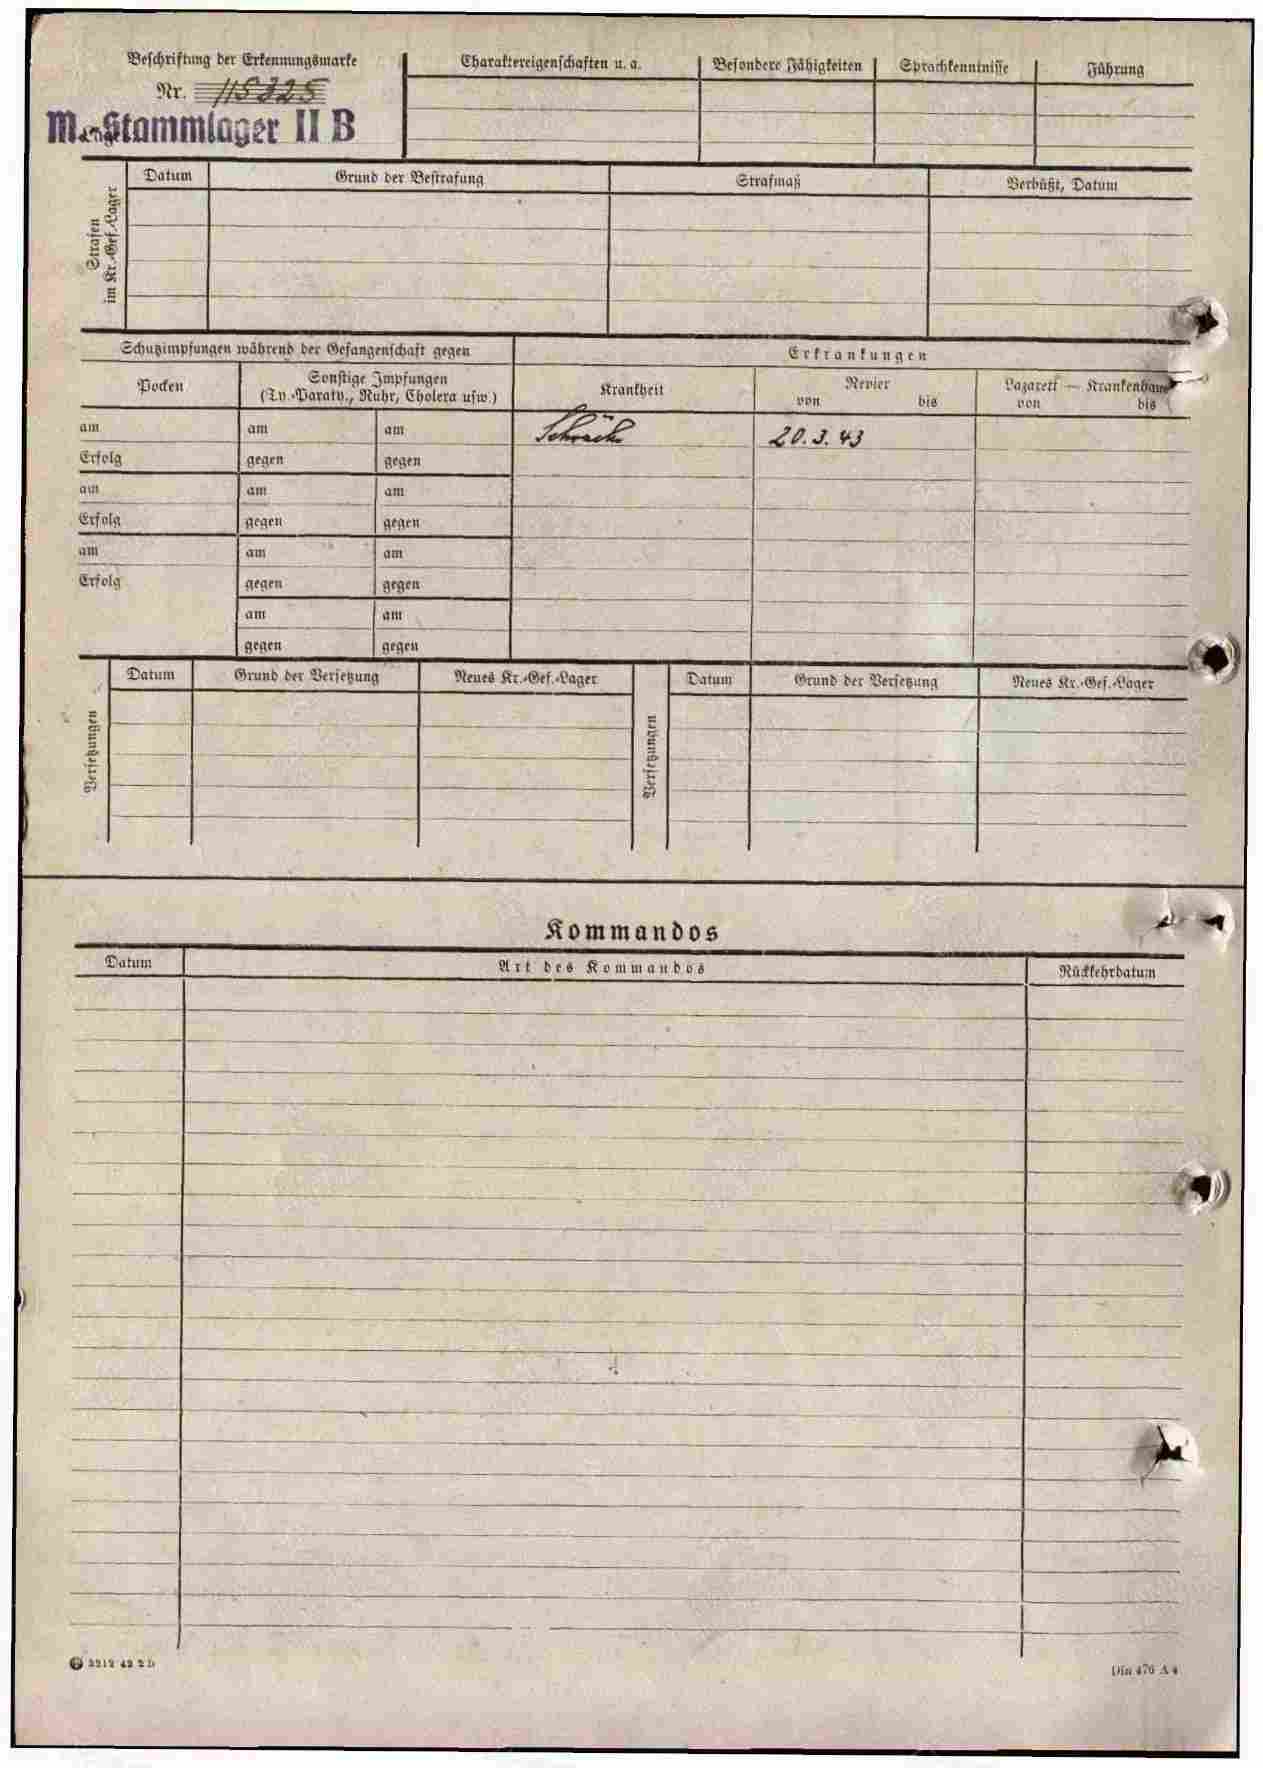 Beschriftung der Erkennungsmarke
Nr. 115325
M.-Stammlager II B
Charaktereigenschaften u. a.
Besondere Fähigkeiten
Sprachkenntnisse
Führung
Strafen im Kr.-Gef.-Lager
Datum
Grund der Bestrafung
Strafmaß
Verbüßt, Datum
Schutzimpfungen während der Gefangenschaft gegen
Erkrankungen
Pocken
Sonstige Impfungen
(Ty.-Paraty., Ruhr, Cholera usw.)
Krankheit
Revier
von bis
Lazarett — Krankenhaus
von bis
am am am
Schwäche 20.3.43
Erfolg gegen gegen
am am am
Erfolg gegen gegen
am am am
Erfolg gegen gegen
am am
gegen gegen
Versetzungen
Datum
Grund der Versetzung
Neues Kr.-Gef.-Lager
Versetzungen
Datum
Grund der Versetzung
Neues Kr.-Gef.-Lager
Kommandos
Datum
Art des Kommandos
Rückkehrdatum
2212 42 2 D
Din 476 A 4